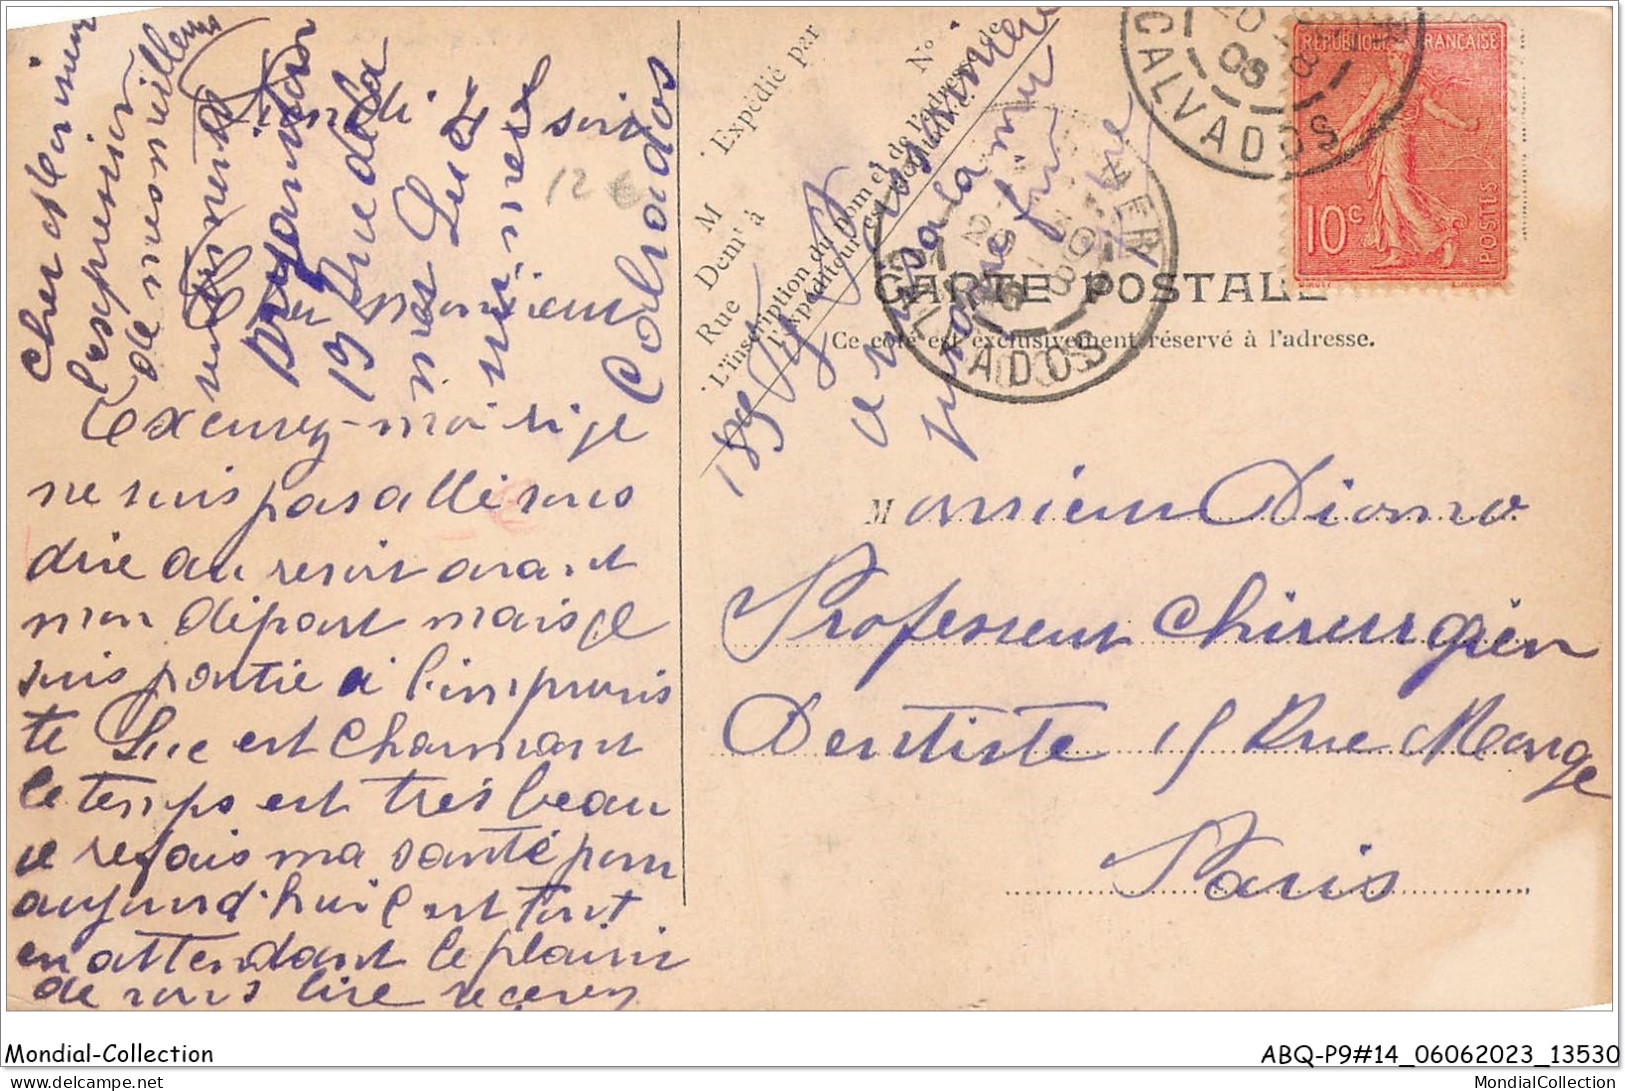 Lundi soir
Cher Monsieur
Excusez-moi si je
ne suis pas allé vous
dire au revoir avant
mon départ mais je
suis partie à l'improvis
te Luc est charmant
le temps est très beau
je refais ma santé pour
aujourd'hui c'est tout
en attendant le plaisir
de vous lire recevez
cher Monsieur
l'expression
de mes meilleurs
19 Rue de la
mer Luc s
mer
Calvados
Expédié par
No
M
Demt à
Rue
L'inscription du nom et de l'adresse de
l'expéditeur est facultative.
CARTE POSTALE
(Ce côté est exclusivement réservé à l'adresse.
CALVADOS
20
08
REPUBLIQUE FRANÇAISE
10c
POSTES
12 €
Monsieur Diomo
Professeur Chirurgien
Dentiste 15 Rue Monge
Paris
Mondial-Collection
ABQ-P9#14_06062023_13530
www.delcampe.net
MondialCollection